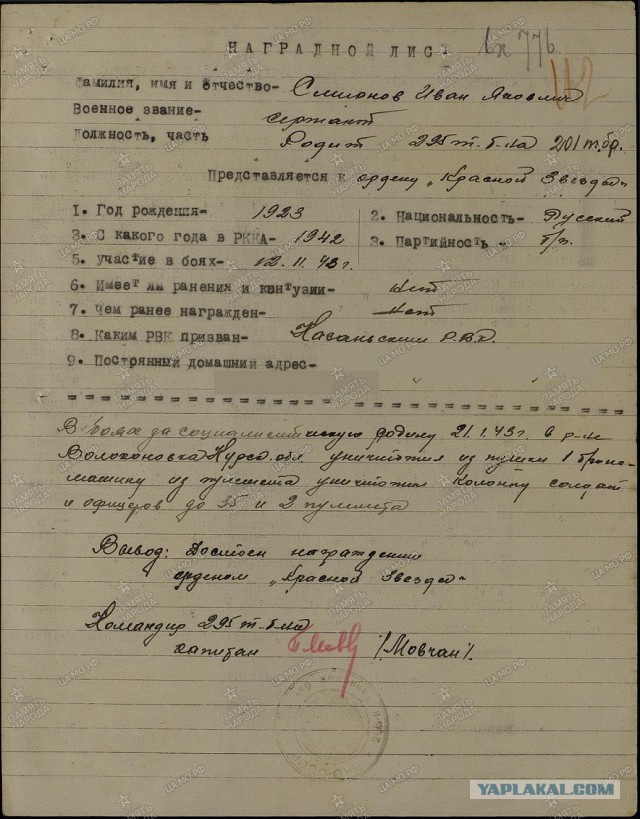 НАГРАДНОЙ ЛИСТ
вх 776
112
Фамилия, имя и отчество- Симонов Иван Яковлевич
Военное звание- сержант
Должность, часть Радист 295 т. б-на 201 т. бр.
Представляется к ордену „Красной Звезды"
1. Год рождения- 1923
2. Национальность- Русский
3. С какого года в РККА- 1942
3. Партийность - б/п.
5. участие в боях- 12.11.43 г.
6. Имеет ли ранения и контузии- нет
7. Чем ранее награжден- нет
8. Каким РВК призван- Р.В.К.
9. Постоянный домашний адрес-
В боях за социалистическую родину 21.1.43 г. в р-не
Волоконовка Курск. обл. уничтожил из пушки 1 броне-
машину из пулемета уничтожил колонну солдат
и офицеров до 35 и 2 пулемета
Вывод: Достоин награждения
орденом „Красной Звезды"
Командир 295 т. б-на
капитан /Мовчан/.
ПАМЯТЬ НАРОДА
ЦАМО.РФ
YAPLAKAL.COM